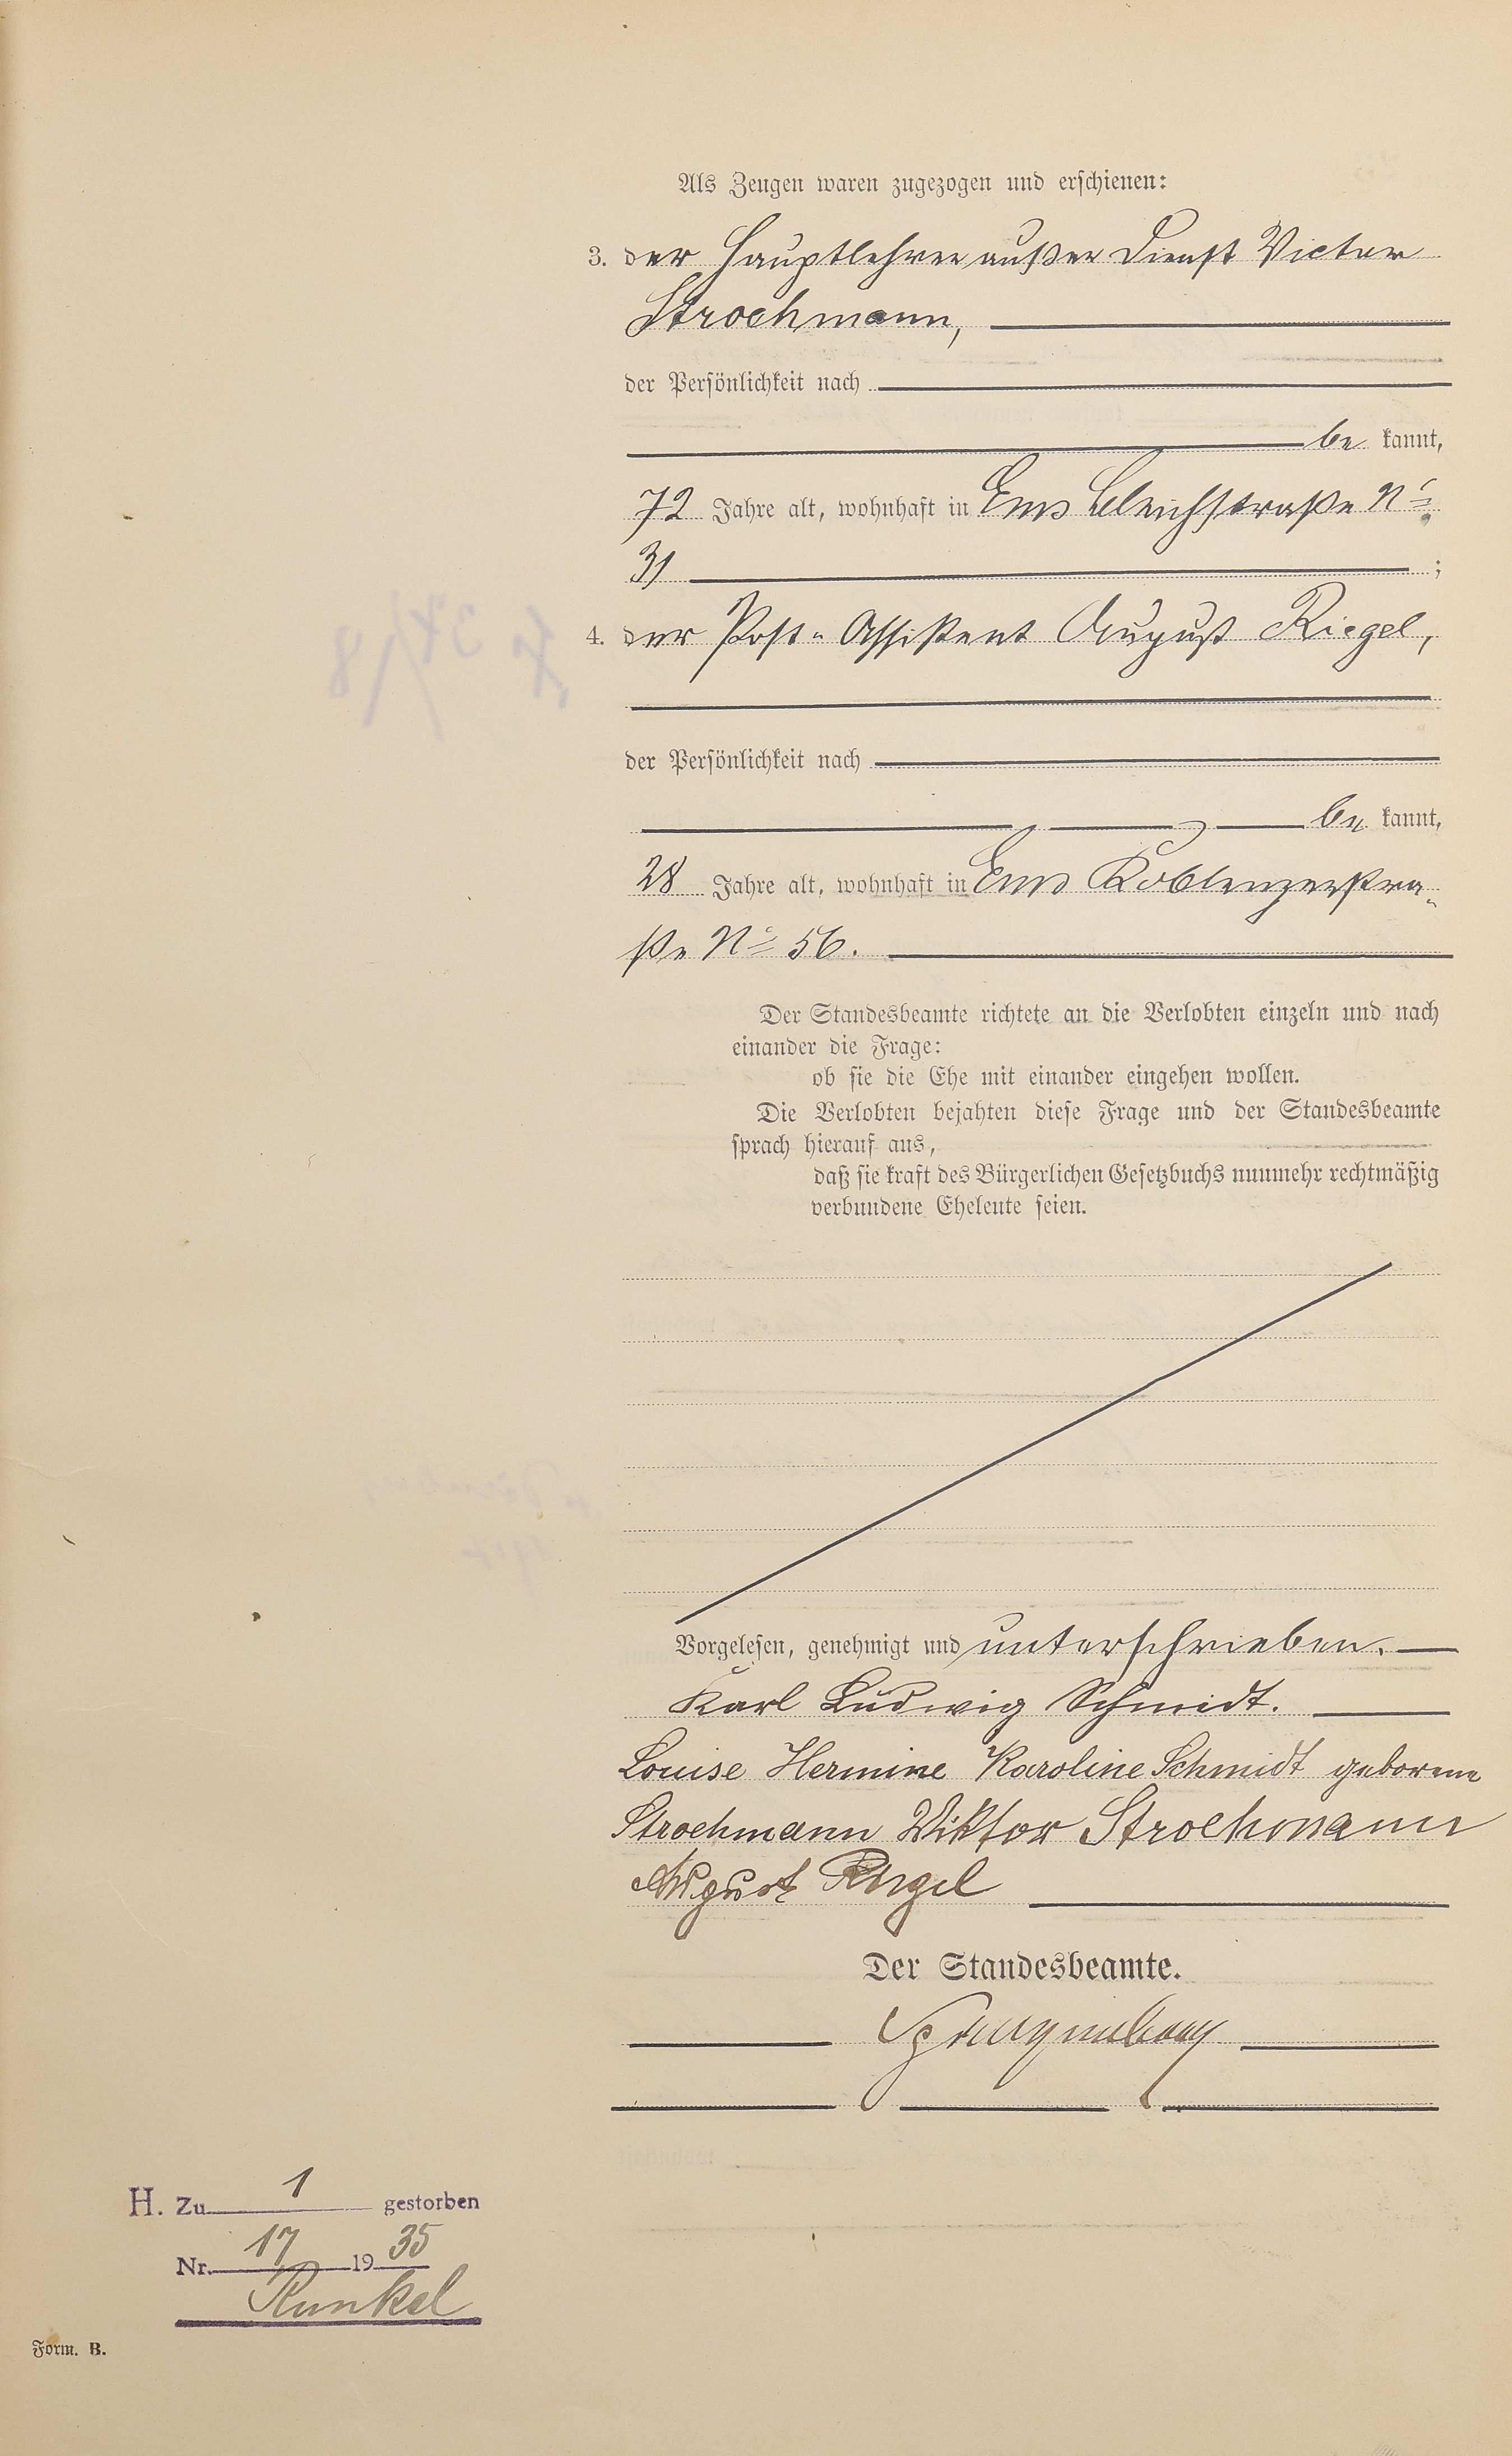 Als Zeugen waren zugezogen und erschienen:
3. der Hauptlehrer außer Dienst Victor
Stroehmann,
der Persönlichkeit nach
be kannt,
72 Jahre alt, wohnhaft in Ems Bleichstraße No
31 ;
4. der Post-Assistent August Riegel,
der Persönlichkeit nach
be kannt,
28 Jahre alt, wohnhaft in Ems Koblenzerstra-
ße No 56.
Der Standesbeamte richtete an die Verlobten einzeln und nach
einander die Frage:
ob sie die Ehe mit einander eingehen wollen.
Die Verlobten bejahten diese Frage und der Standesbeamte
sprach hierauf aus,
daß sie kraft des Bürgerlichen Gesetzbuchs nunmehr rechtmäßig
verbundene Eheleute seien.
Vorgelesen, genehmigt und unterschrieben.
Karl Ludwig Schmidt.
Louise Hermine Karoline Schmidt geborene
Stroehmann Wiktor Stroehmann
August Riegel
Der Standesbeamte.
H. Zu 1 gestorben
Nr. 17 1935
Runkel
Form. B.